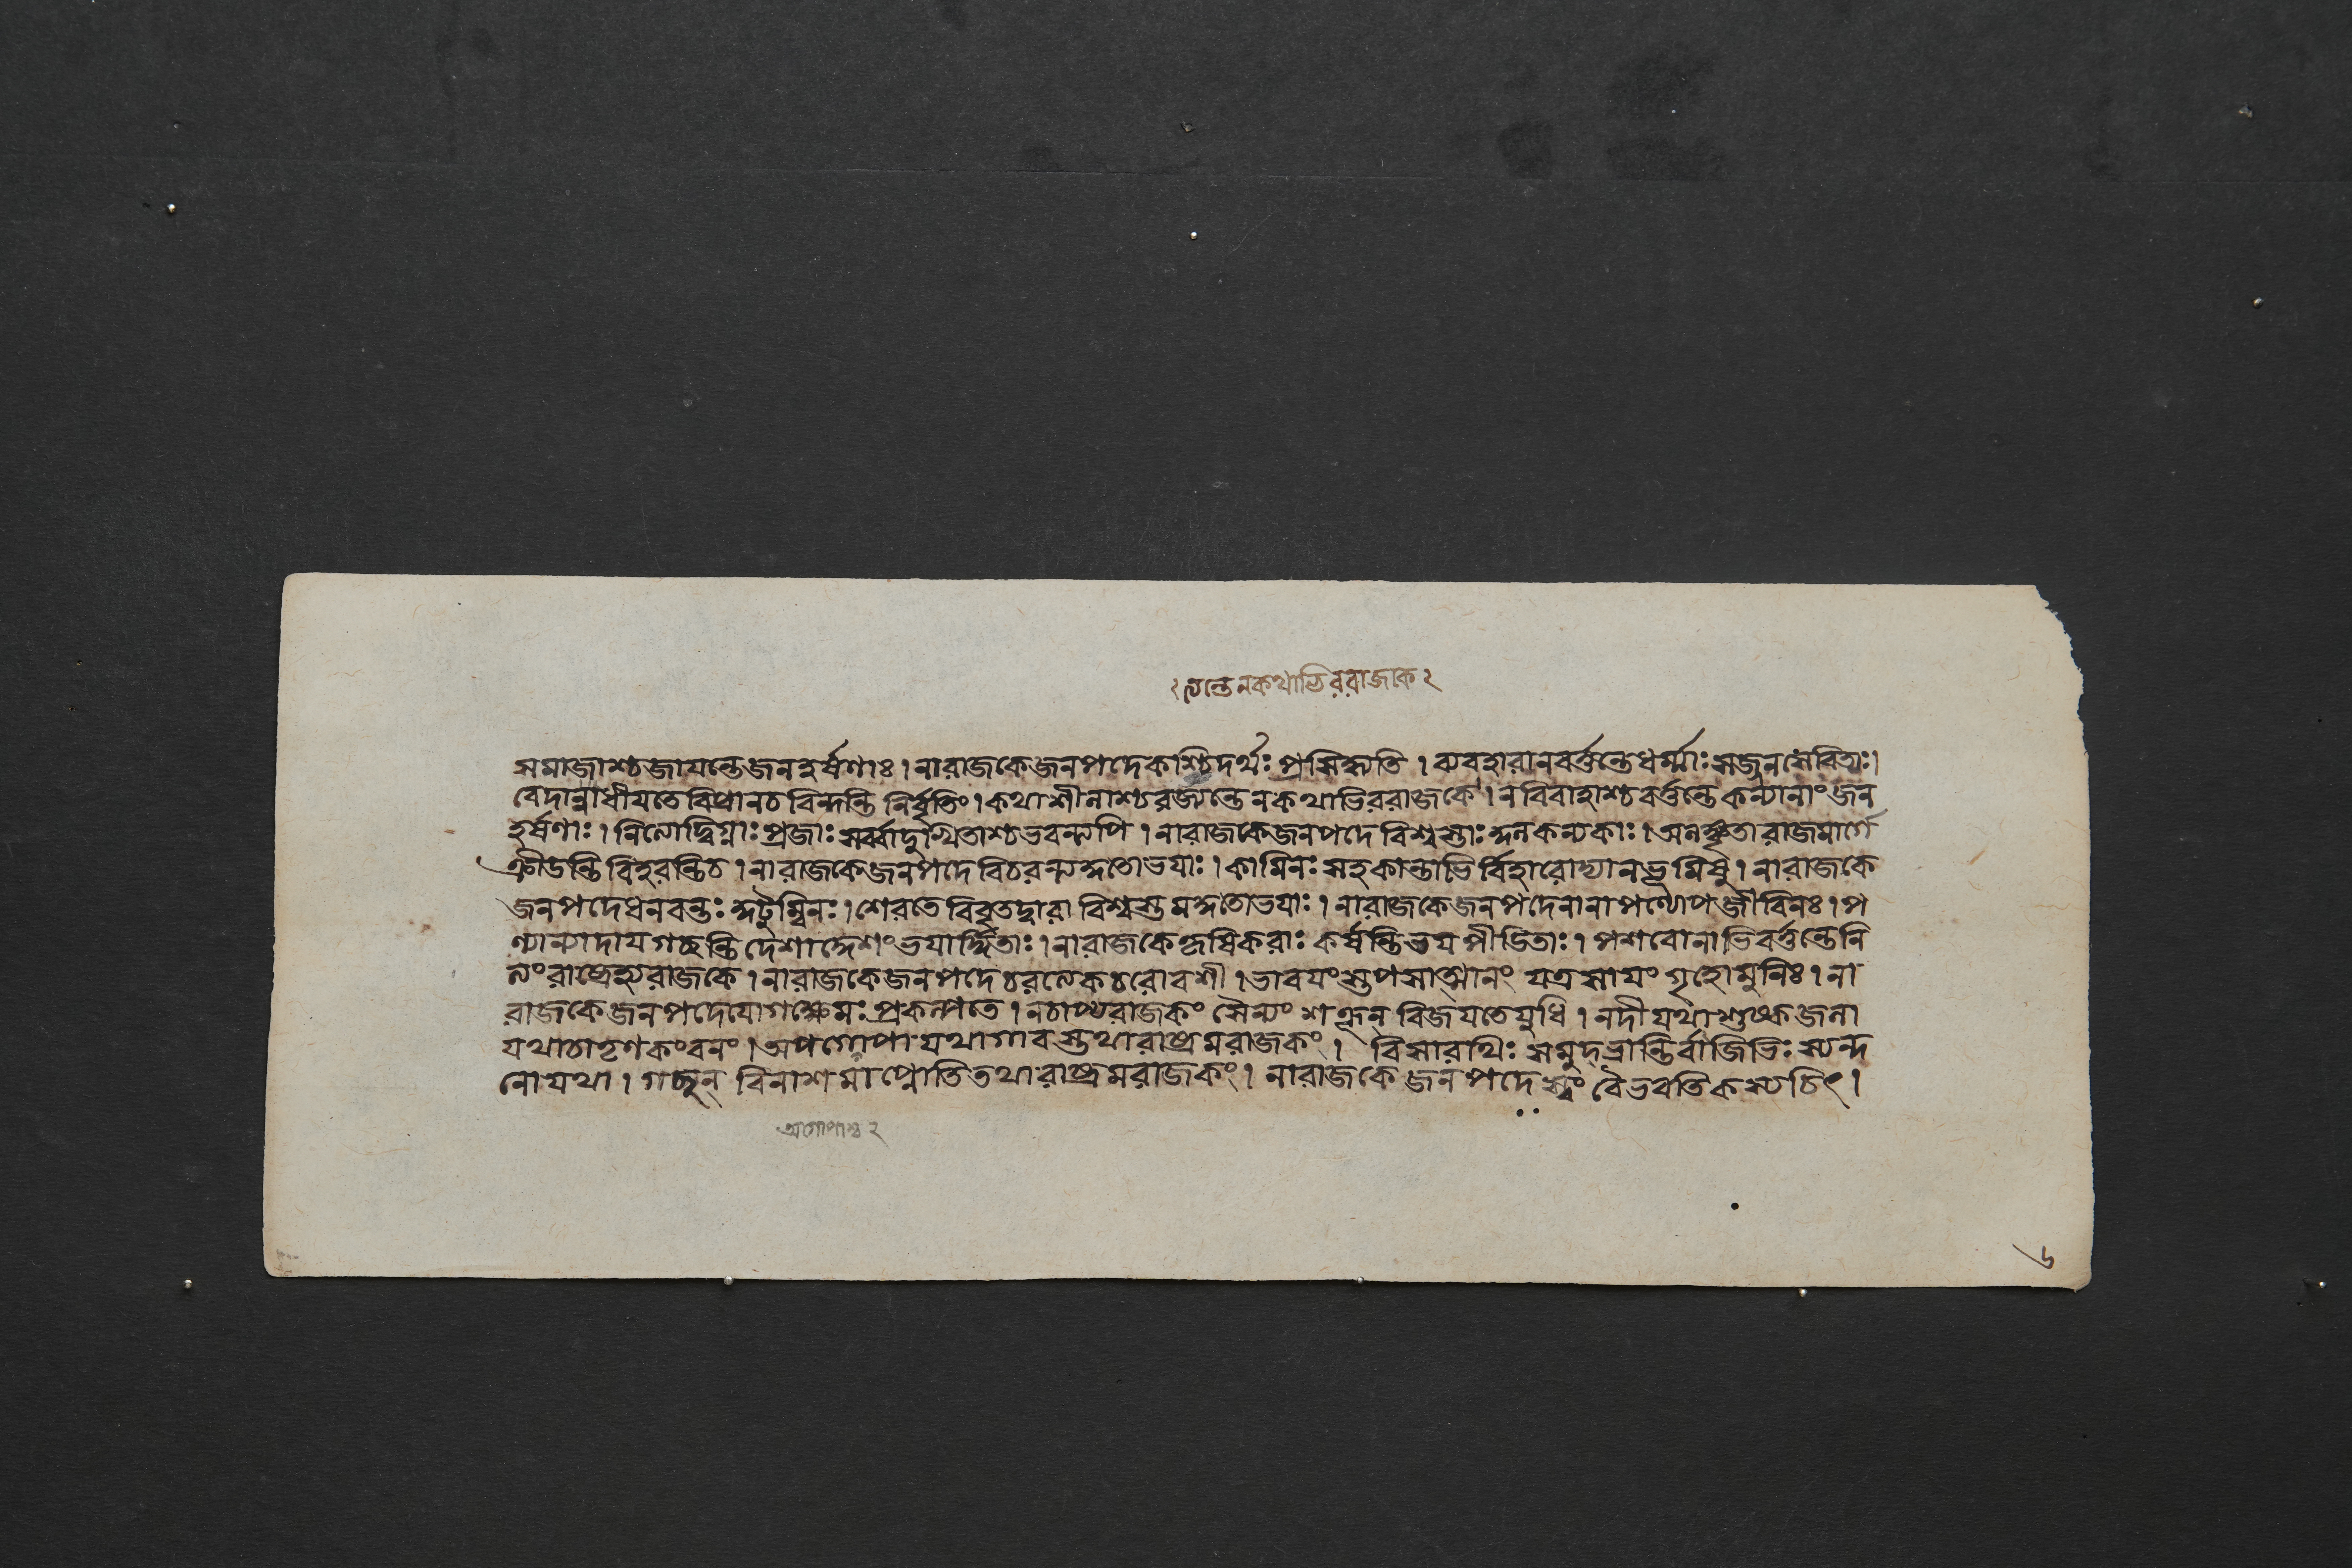 ২ ্যন্তেনকথাভিররাজাক ২
সমাজাশ্চজায়ন্তেজনহর্ষণাঃ । নারাজকেজনপদেকশ্চিদর্থঃ প্রসিদ্ধ্যতি । ব্যবহারানবর্ত্তন্তেধর্ম্মাঃ সজ্জনসেবিতাঃ ।
বেদান্নাধীয়তে বিপ্রানচ বিন্দন্তি নির্বৃতিং । কথাশীনাশ্চরজ্যন্তেন কথাভিররাজকে । ন বিবাহাশ্চ বর্ত্তন্তে কন্যানাং জন
হর্ষণাঃ । নিত্যোদ্বিগ্নাঃ প্রজাঃ সর্ব্বাদুঃখিতাশ্চভবন্ত্যপি । নারাজকেজনপদে বিশ্বস্তাঃ কুলকন্যকাঃ । অলঙ্কৃতা রাজমার্গে
ক্রীডন্তি বিহরন্তিচ । নারাজকেজনপদে বিচরন্ত্যকুতোভয়াঃ । কামিনঃ সহকান্তাভি র্বিহারোদ্যানভূমিষু । নারাজকে
জনপদেধনবন্তঃ কুটুম্বিনঃ । শেরতে বিবৃতদ্বারা বিশ্বস্তমকুতোভয়াঃ । নারাজকেজনপদেনানাপণ্যোপজীবিনঃ । প
ণ্যান্যাদায়গচ্ছন্তি দেশাদ্দেশং ভয়ার্দ্দিতাঃ । নারাজকেকৃষিকরাঃ কর্ষন্তিভয়পীডিতাঃ । পশবোনাভিবর্ত্তন্তেনি
ত্যং রাষ্ট্রেহ্যরাজকে । নারাজকেজনপদেচরত্যেকচরোবশী । ভাবয়ংস্তপসাত্মানং যত্রসায়ং গৃহোমুনিঃ । না
রাজকেজনপদেযোগক্ষেমঃ প্রকল্পতে । নচাপ্যরাজকং সৈন্যং শত্রূন্ বিজয়তেযুধি । নদীযথাশুষ্কজনা
যথাচাতৃণকংবনং । অপগোপা যথাগাবস্তথারাষ্ট্রমরাজকং । বিসারথিঃ সমুদ্ভ্রান্তির্বাজিভিঃ স্যন্দ
নো যথা । গচ্ছন্ বিনাশমাপ্নোতিতথারাষ্ট্রমরাজকং । নারাজকেজনপদে স্বং বৈভবতিকস্যচিৎ ।
অগোপাশ্চ ২
৬